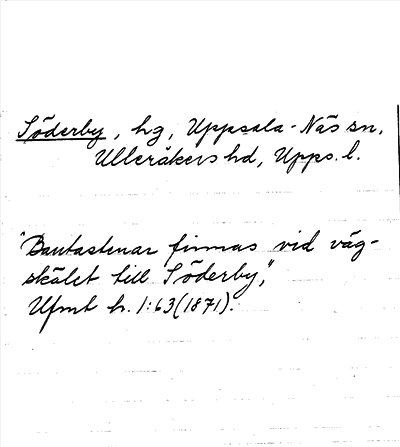 Söderby, hg, Uppsala-Näs sn,
Ulleråkers hd, Upps. l.
"Bautastenar finnas vid väg-
skälet till Söderby",
Ufmt h. 1:63 (1871).